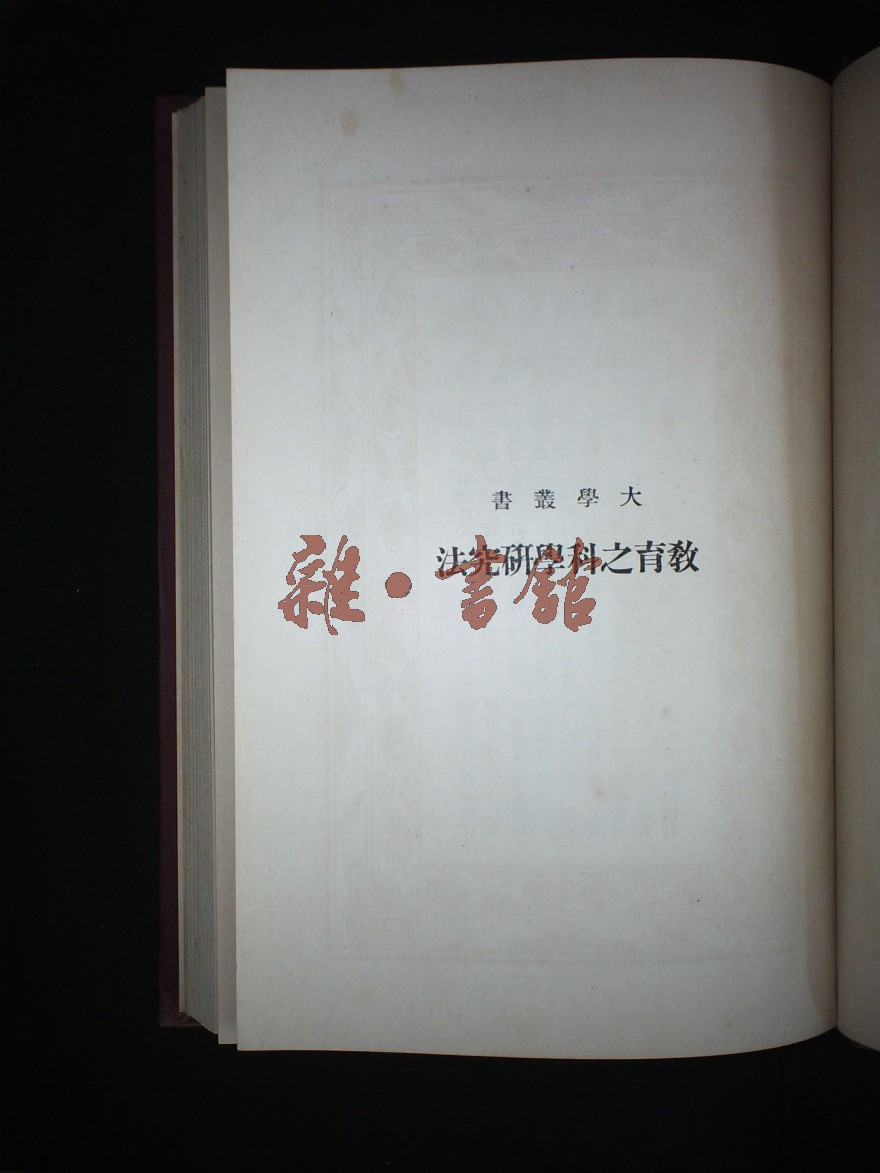 大學叢書
敎育之科學研究法
雜·書館